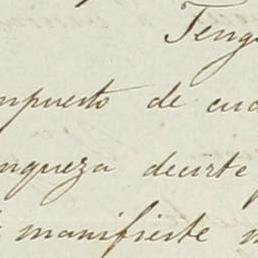 Teng
mpuesto de cua
nqueza decirte
manifieste